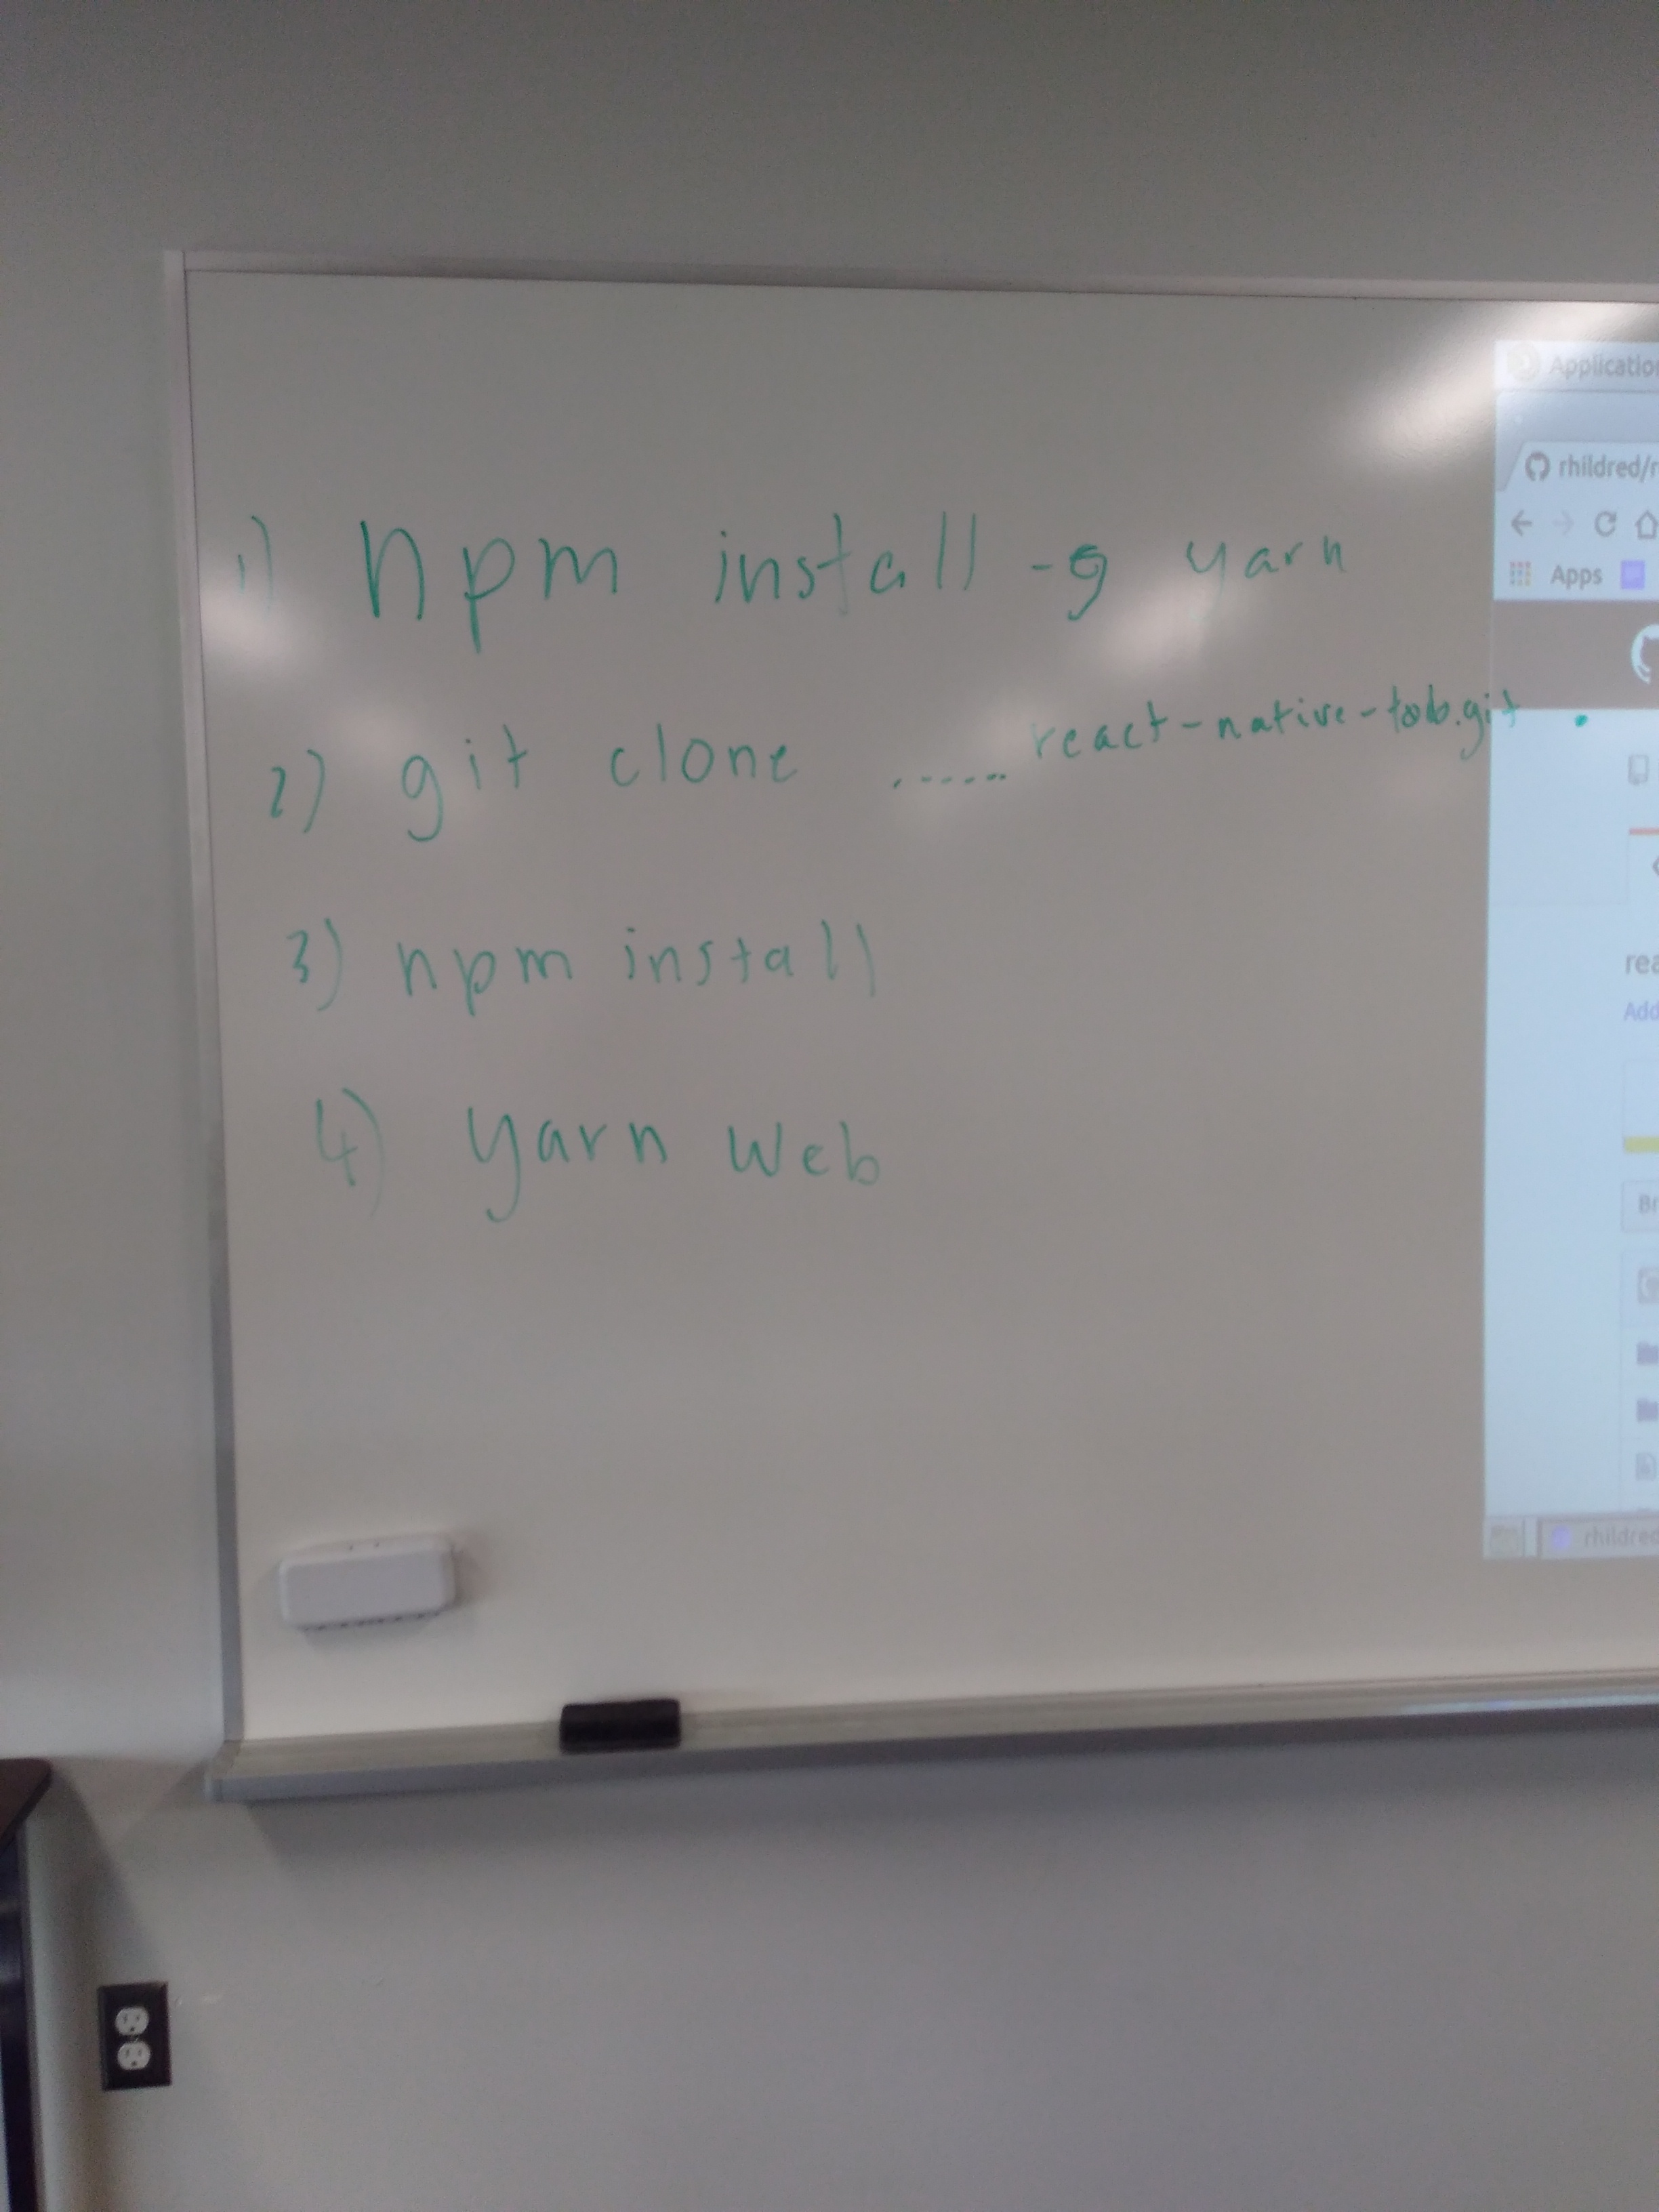 1) npm install -g yarn
2) git clone ...... react-native-
3) npm install
4) yarn web
Applicatio
rhildred/r
Apps
rea
Add
Br
rhildred